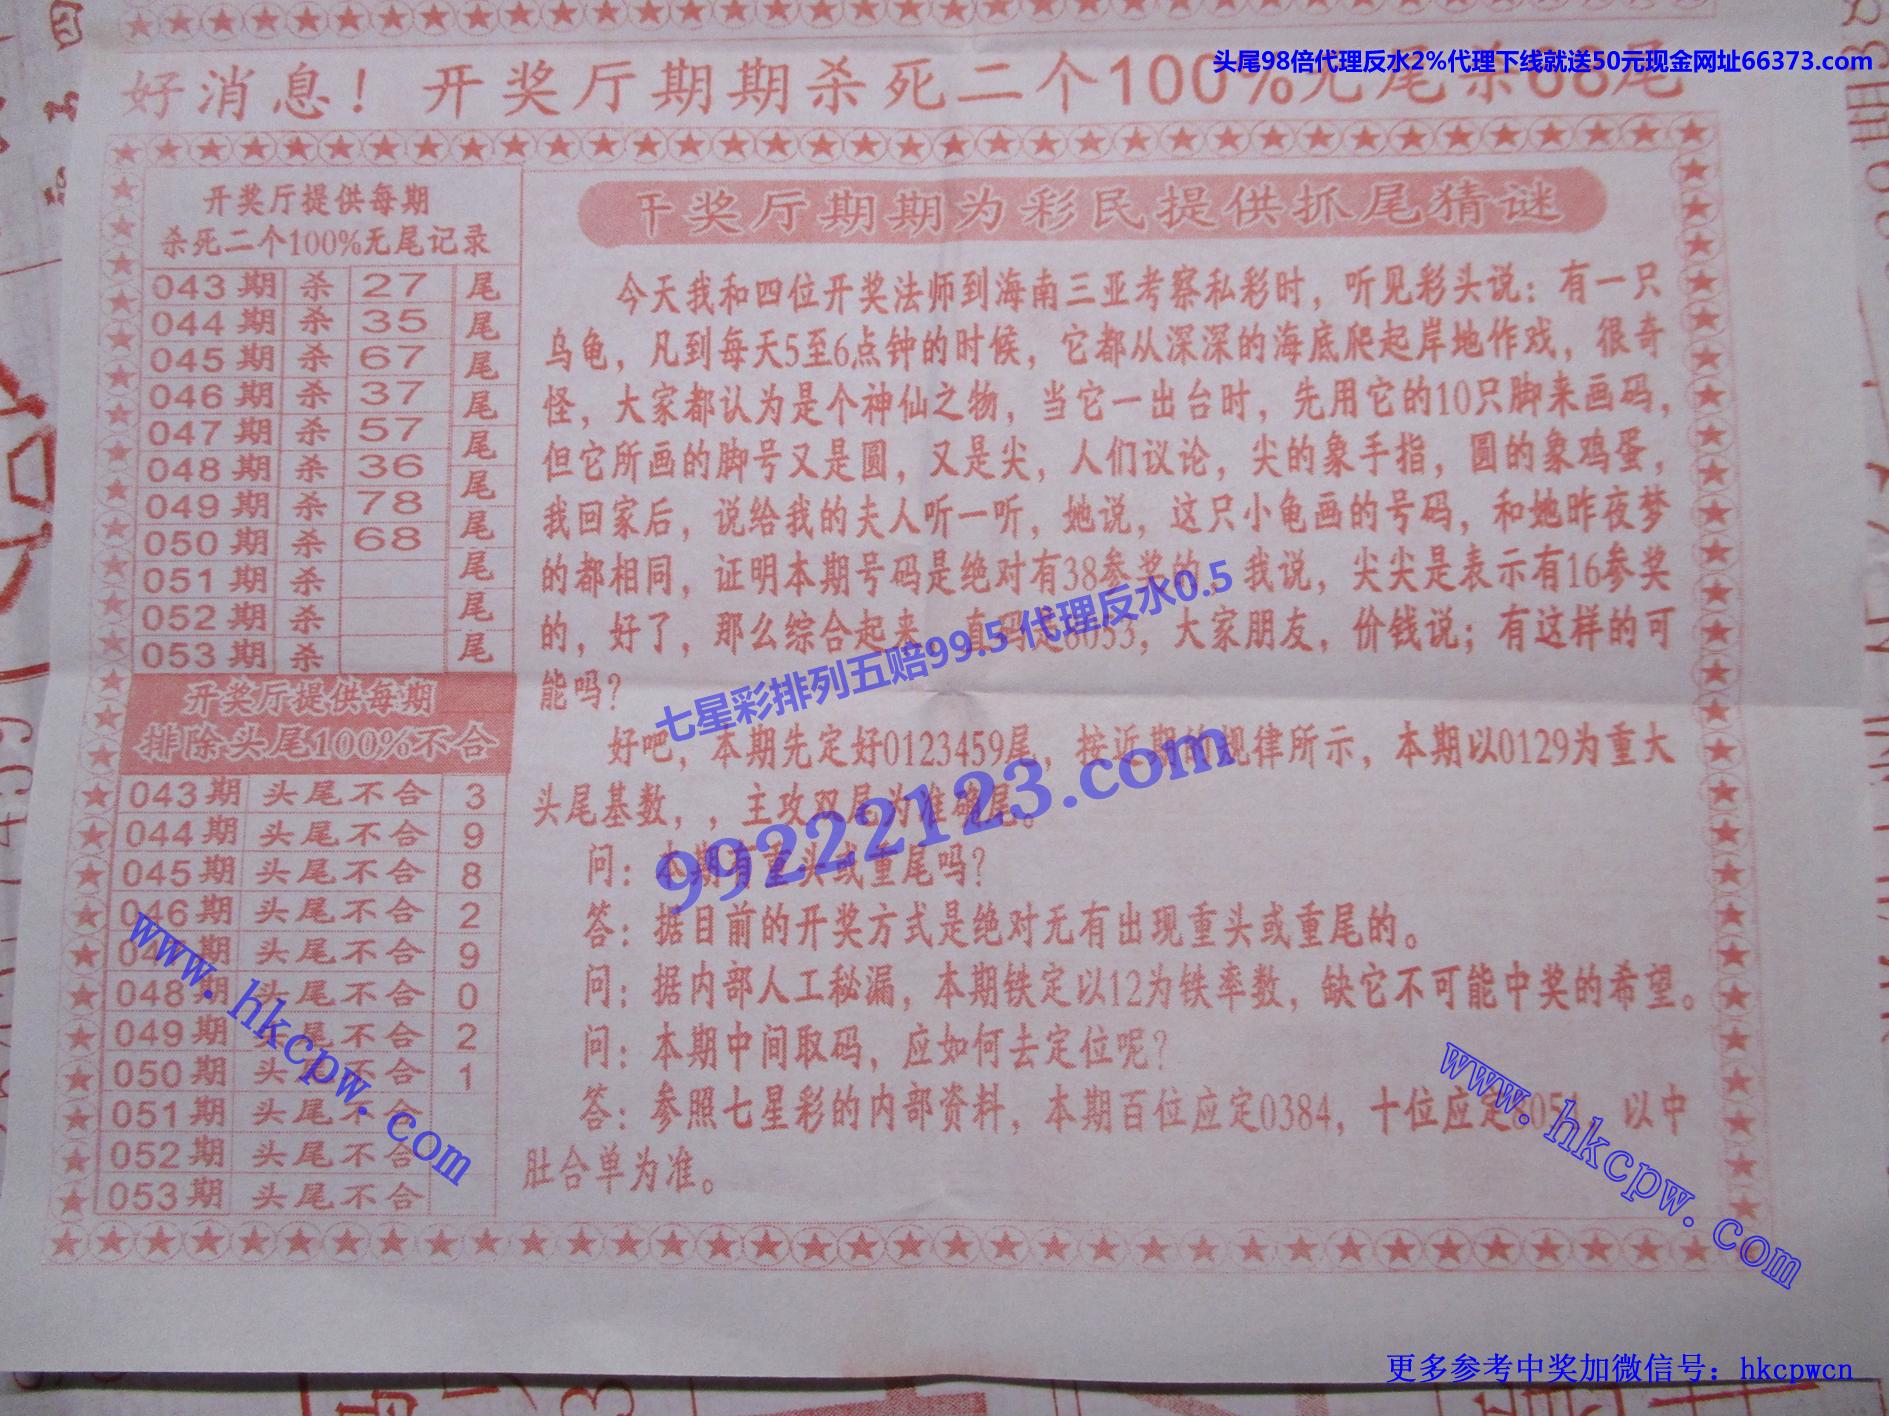 头尾98倍代理反水2%代理下线就送50元现金网址66373.com
好消息！开奖厅期期杀死二个100%无尾杀68尾
开奖厅提供每期
杀死二个100%无尾记录
043期 杀 27 尾
044期 杀 35 尾
045期 杀 67 尾
046期 杀 37 尾
047期 杀 57 尾
048期 杀 36 尾
049期 杀 78 尾
050期 杀 68 尾
051期 杀 尾
052期 杀 尾
053期 杀 尾
开奖厅提供每期
排除头尾100%不合
043期 头尾不合 3
044期 头尾不合 9
045期 头尾不合 8
046期 头尾不合 2
047期 头尾不合 9
048期 头尾不合 0
049期 头尾不合 2
050期 头尾不合 1
051期 头尾不合
052期 头尾不合
053期 头尾不合
开奖厅期期为彩民提供抓尾猜谜
今天我和四位开奖法师到海南三亚考察私彩时，听见彩头说：有一只
乌龟，凡到每天5至6点钟的时候，它都从深深的海底爬起岸地作戏，很奇
怪，大家都认为是个神仙之物，当它一出台时，先用它的10只脚来画码，
但它所画的脚号又是圆，又是尖，人们议论，尖的象手指，圆的象鸡蛋，
我回家后，说给我的夫人听一听，她说，这只小龟画的号码，和她昨夜梦
的都相同，证明本期号码是绝对有38参奖的，我说，尖尖是表示有16参奖
的，好了，那么综合起来，直码是8053，大家朋友，价钱说；有这样的可
能吗？
好吧，本期先定好0123459尾，按近期的规律所示，本期以0129为重大
头尾基数，，主攻双尾为准确尾。
问：本期有重头或重尾吗？
答：据目前的开奖方式是绝对无有出现重头或重尾的。
问：据内部人工秘漏，本期铁定以12为铁率数，缺它不可能中奖的希望。
问：本期中间取码，应如何去定位呢？
答：参照七星彩的内部资料，本期百位应定0384，十位应定805 以中
肚合单为准。
七星彩排列五赔99.5 代理反水0.5
99222123.com
www.hkcpw.com
www.hkcpw.com
更多参考中奖加微信号：hkcpwcn